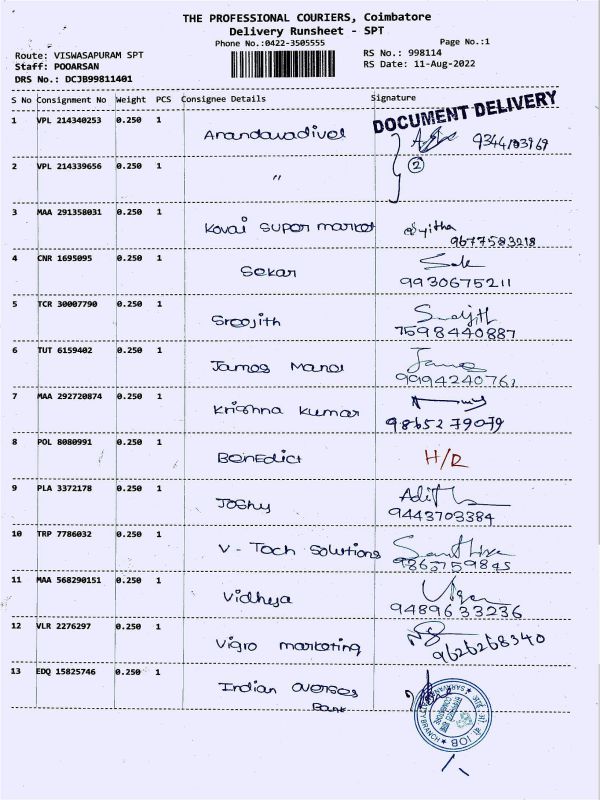 THE PROFESSIONAL COURIERS, Coimbatore
Delivery Runsheet - SPT
Phone No.:0422-3505555
Page No.:1
Route: VISWASAPURAM SPT
RS No.: 998114
Staff: POOARSAN
RS Date: 11-Aug-2022
DRS No.: DCJB99811401
S No Consignment No Weight PCS Consignee Details Signature
DOCUMENT DELIVERY
1 VPL 214340253 0.250 1 Anandavadivel 9344103969
2 VPL 214339656 0.250 1 " 2
3 MAA 291358031 0.250 1 Kovai Super market
9677583218
4 CNR 1695095 0.250 1 Sekar
9930675211
5 TCR 30007790 0.250 1 Sreejith
7598440887
6 TUT 6159402 0.250 1 James Manoj James
9994240761
7 MAA 292720874 0.250 1 Krishna Kumar
9865279079
8 POL 8080991 0.250 1 Benedict H/R
9 PLA 3372178 0.250 1 Joshy Adith
9443703384
10 TRP 7786032 0.250 1 V - Tech Solutions
9863759845
11 MAA 568290151 0.250 1 Vidheya
9489633236
12 VLR 2276297 0.250 1 Vigro marketing
9626268340
13 EDQ 15825746 0.250 1 Indian Overses
Bank
IOB
BRANCH